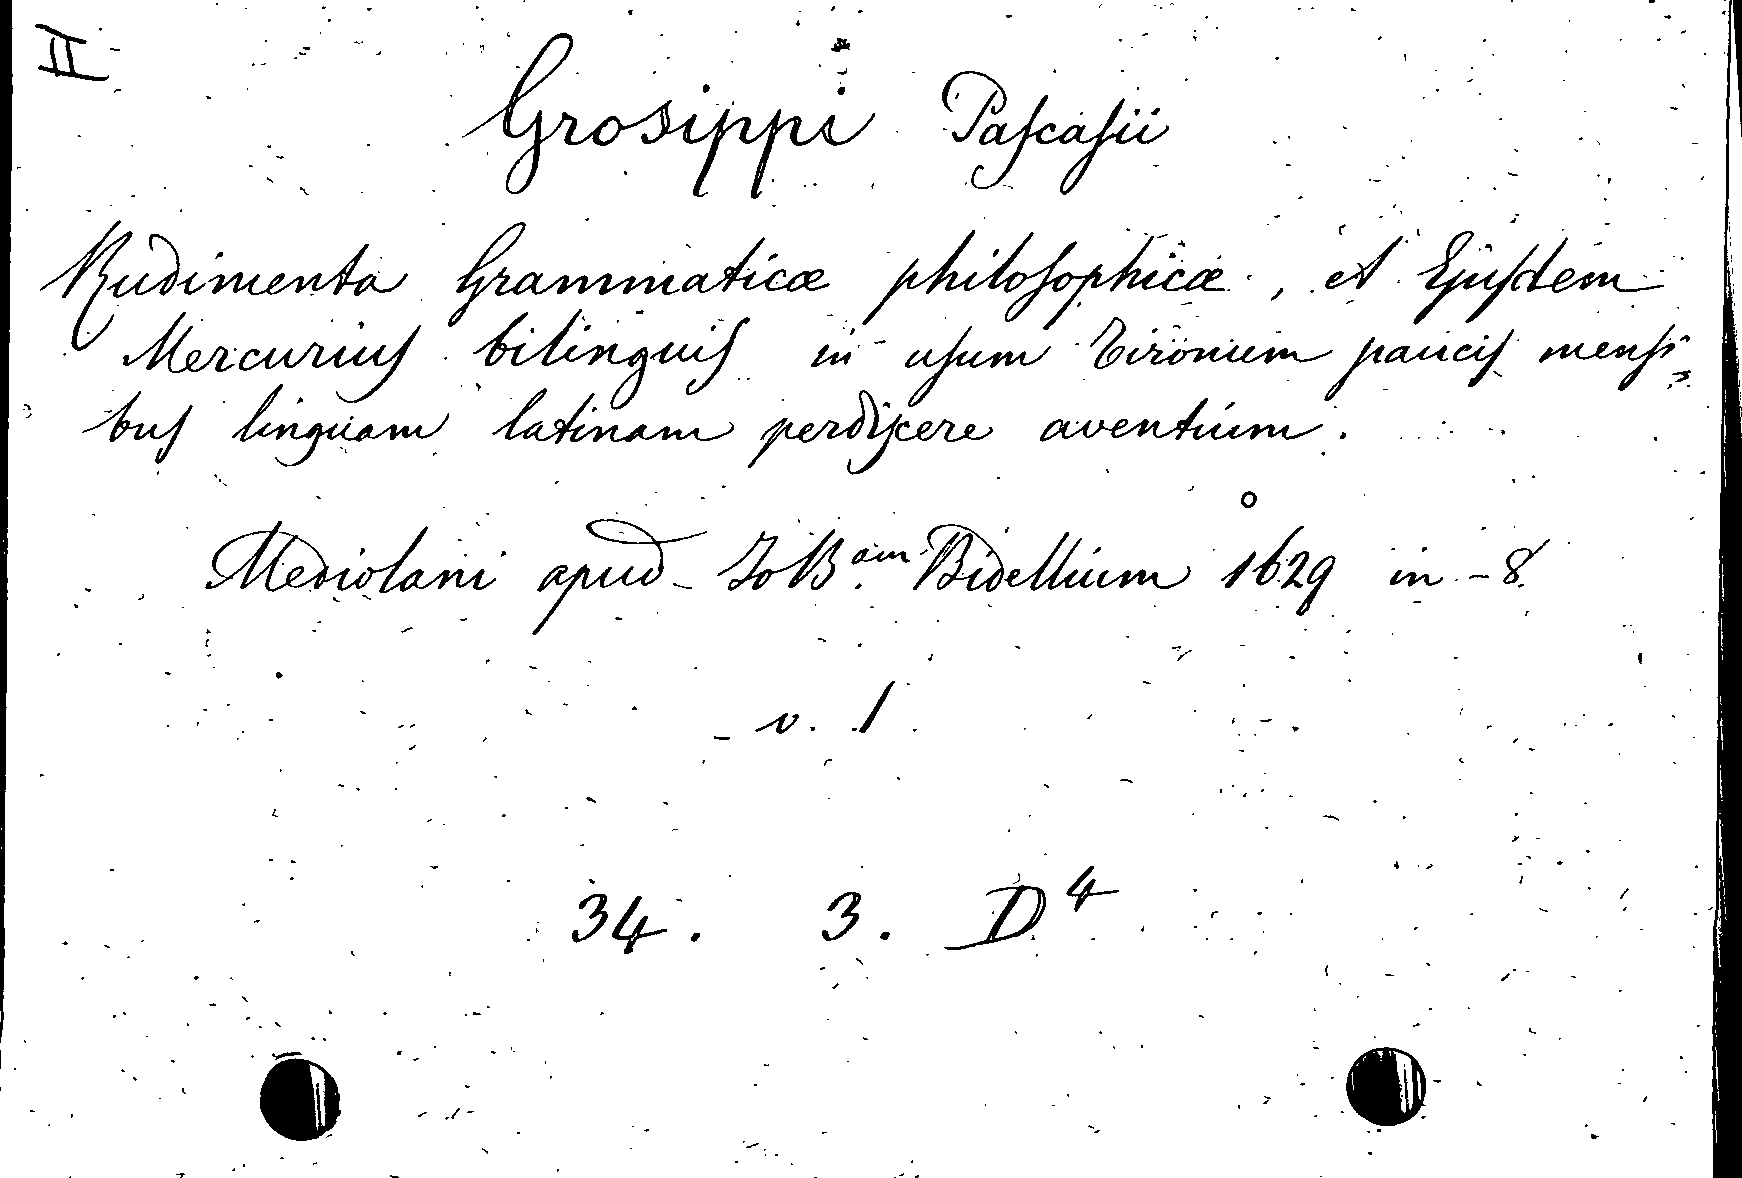 II
Grosippi Pascasii
Rudimenta Grammaticæ philosophicæ, et Ejusdem
Mercurius bilinguis in usum Tironum paucis mensi=
bus linguam latinam perdiscere aventium.
Mediolani apud Jo B.am Bidellium 1629 in-8.°
v. 1
34. 3. D 4